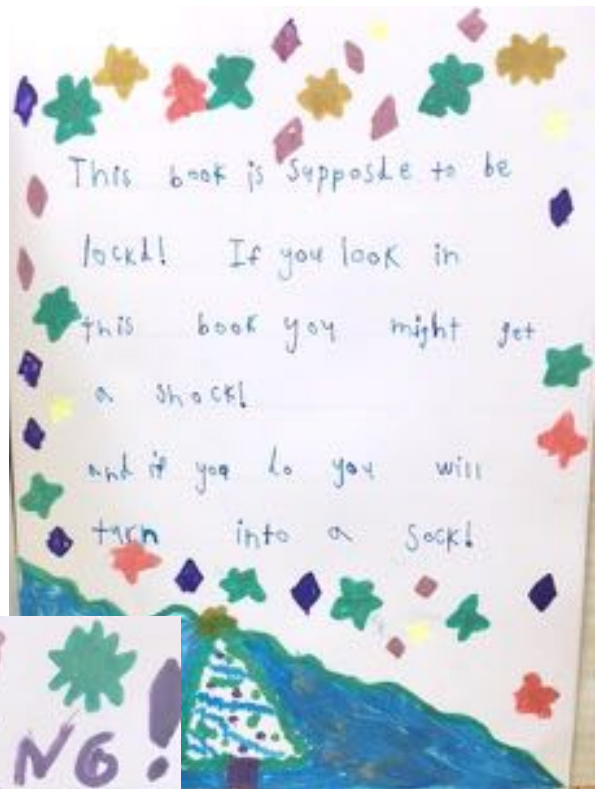 This book is supposde to be
lockd! If you look in
this book you might get
a shock!
and if you do you will
turn into a sock!
NG!